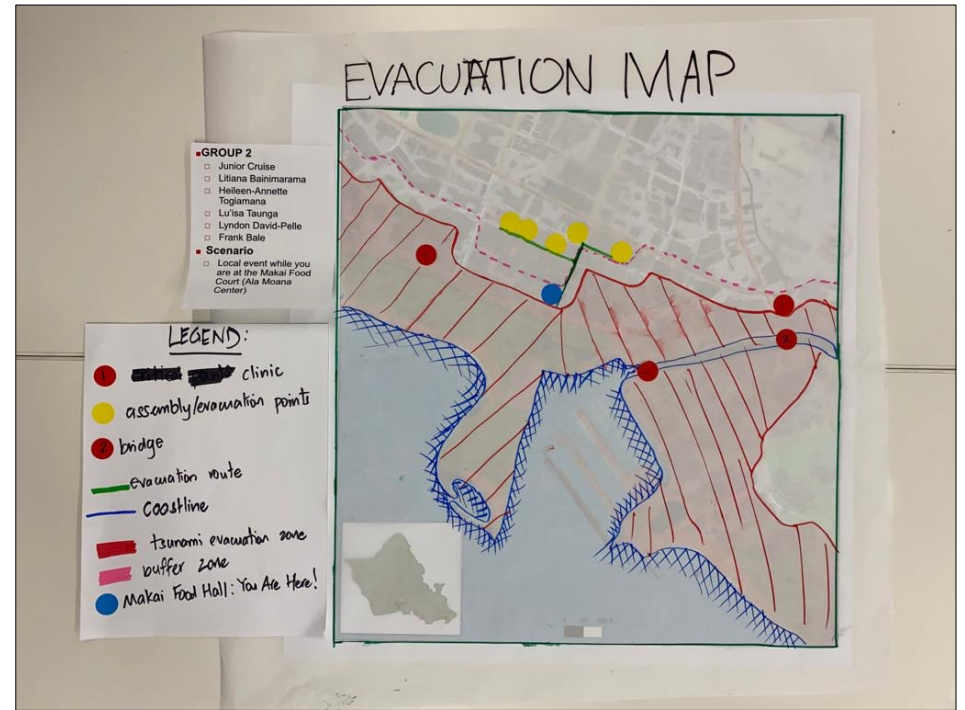 EVACUATION MAP
GROUP 2
Junior Cruise
Litiana Bainimarama
Heileen-Annette
Togiamana
Lu'isa Taunga
Lyndon David-Pelle
Frank Bale
Scenario
Local event while you
are at the Makai Food
Court (Ala Moana
Center)
LEGEND:
1 clinic
assembly/evacuation points
2 bridge
evacuation route
Coostline
tsunami evacuation zone
buffer zone
Makai Food Hall: You Are Here!
2